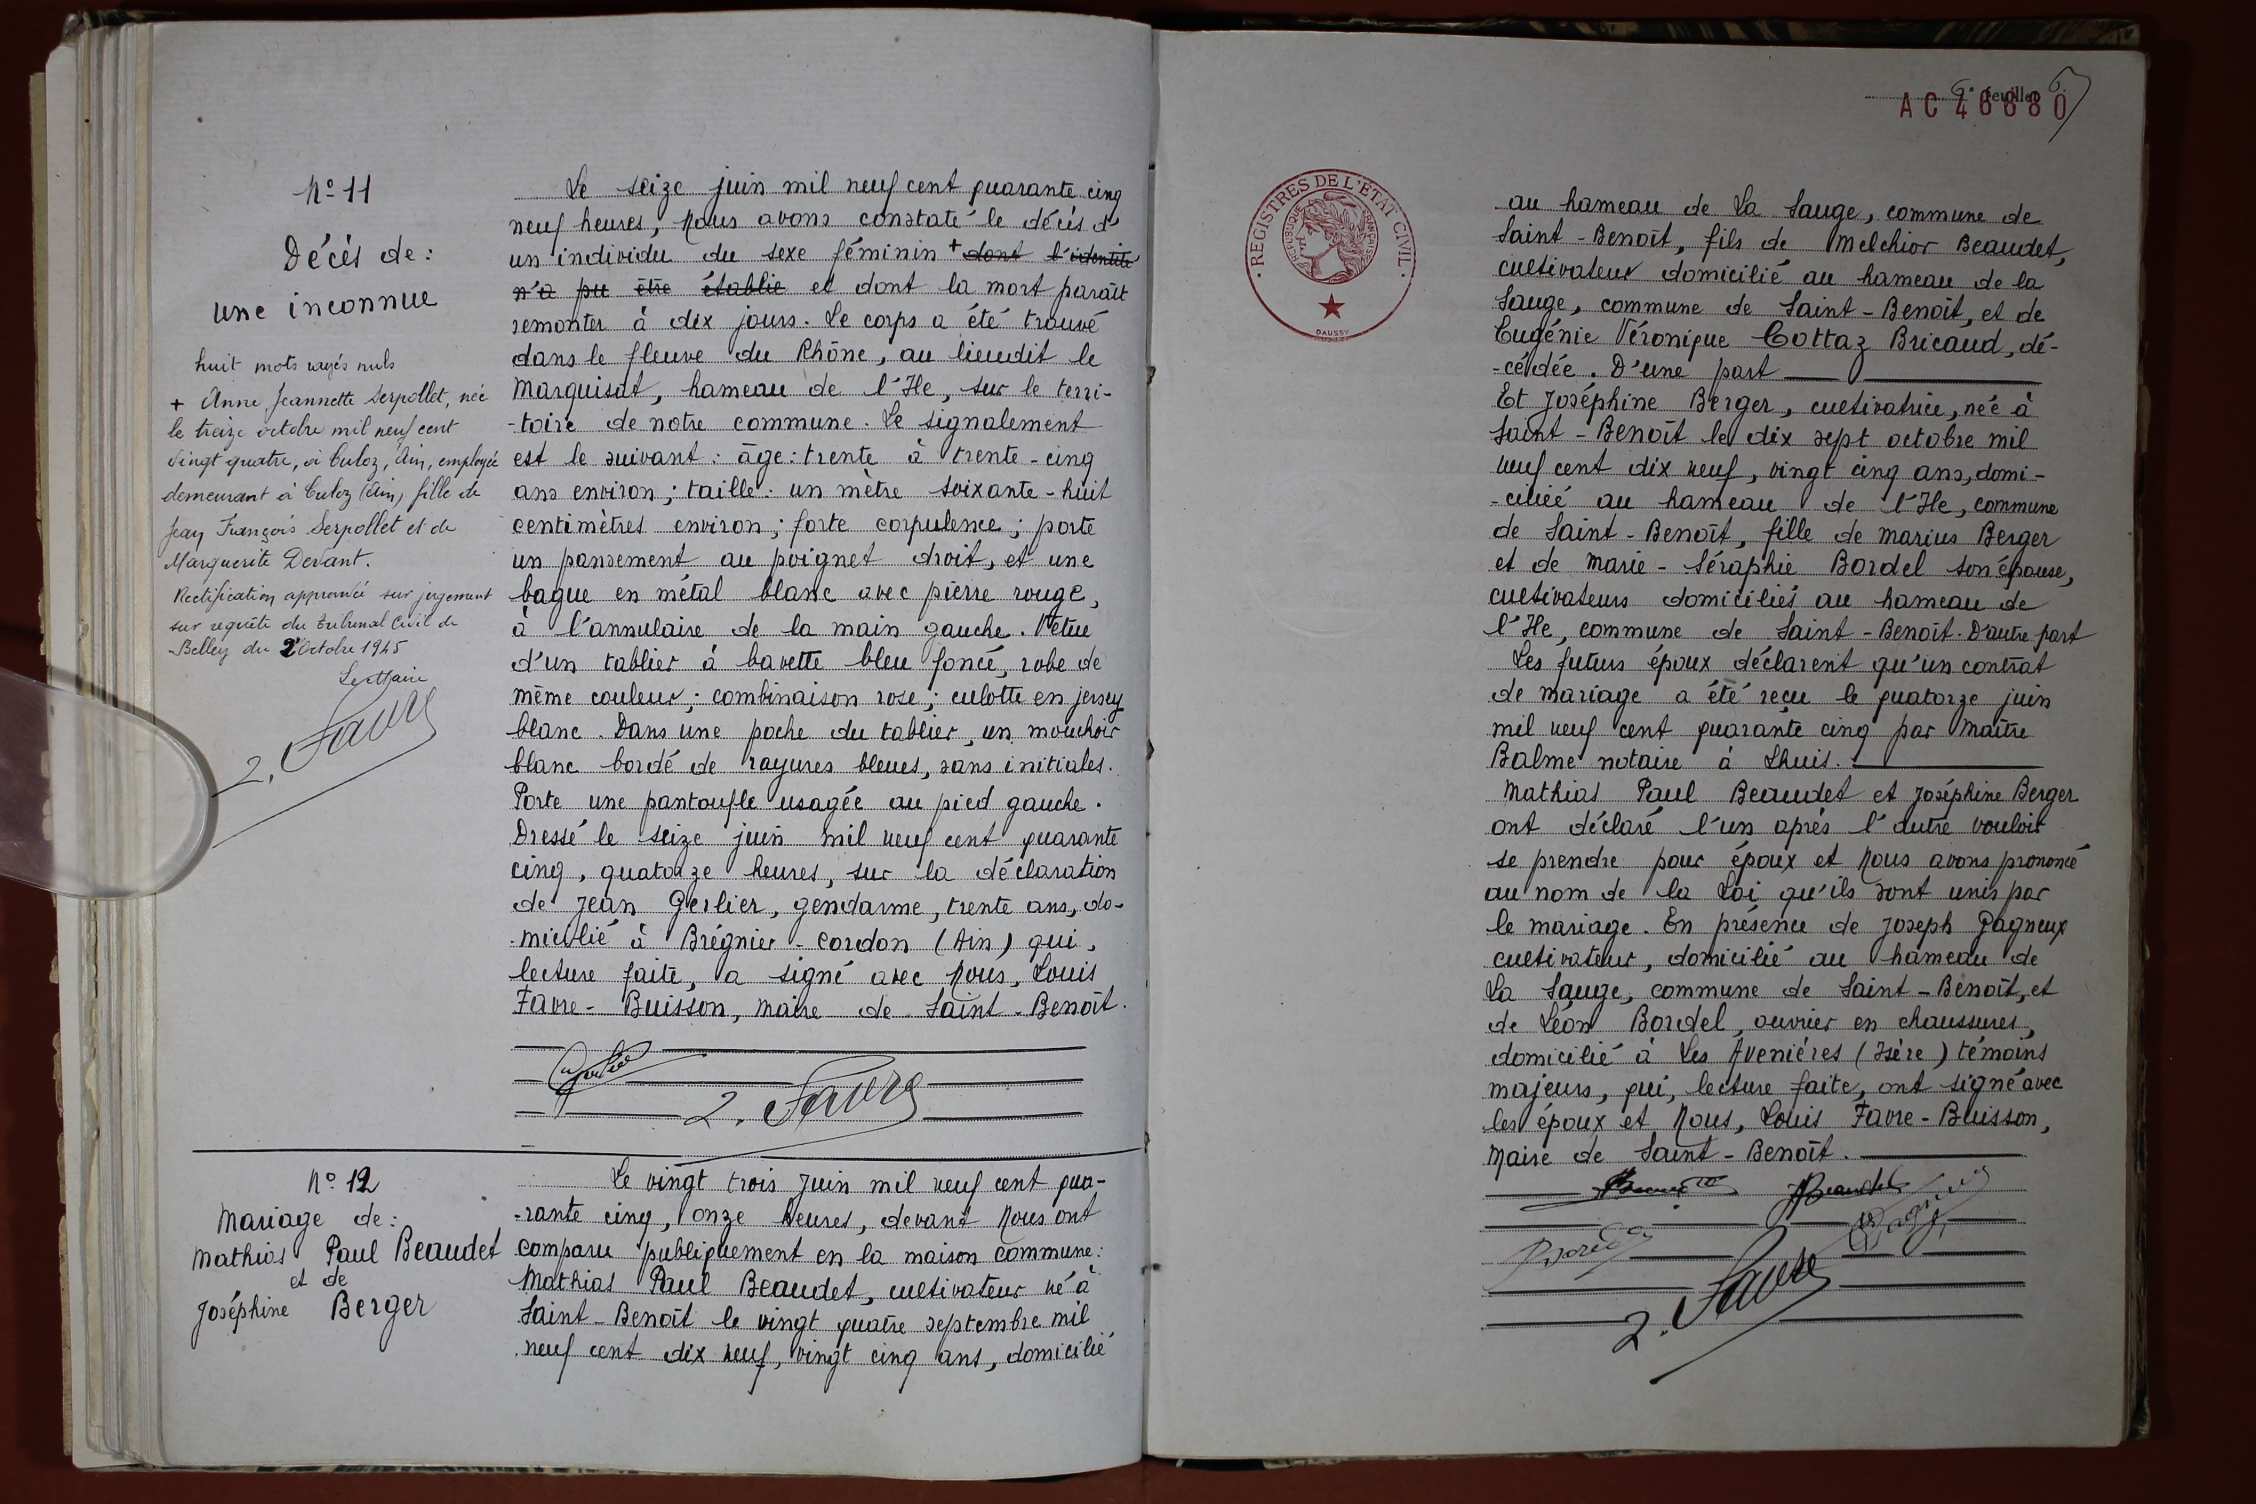 Nº 11
Décès de :
une inconnue
huit mots rayés nuls
+ Anne Jeannette Serpollet, née
le treize octobre mil neuf cent
vingt quatre, à Culoz, Ain, employée
demeurant à Culoz (Ain) fille de
Jean François Serpollet et de
Marguerite Devant.
Rectification approuvée sur jugement
sur requête du Tribunal Civil de
Belley du 2 Octobre 1945
Le Maire
L. Favre
Le seize juin mil neuf cent quarante cinq
neuf heures, Nous avons constaté le décès d'
un individu du sexe féminin + dont l'identité
n'a pu être établie et dont la mort paraît
remonter à dix jours. Le corps a été trouvé
dans le fleuve du Rhône, au lieudit le
Marquisat, hameau de l'Ile, sur le terri-
-toire de notre commune. Le signalement
est le suivant : âge : trente à trente-cinq
ans environ ; taille : un mètre soixante-huit
centimètres environ ; forte corpulence ; porte
un pansement au poignet droit, et une
bague en métal blanc avec pierre rouge,
à l'annulaire de la main gauche. Vêtue
d'un tablier à bavette bleu foncé, robe de
même couleur ; combinaison rose ; culotte en jersey
blanc. Dans une poche du tablier, un mouchoir
blanc bordé de rayures bleues, sans initiales.
Porte une pantoufle usagée au pied gauche.
Dressé le seize juin mil neuf cent quarante
cinq, quatorze heures, sur la déclaration
de Jean Gerlier, gendarme, trente ans, do-
-micilié à Brégnier-Cordon (Ain) qui,
lecture faite, a signé avec Nous, Louis
Favre-Buisson, Maire de Saint-Benoît.
L. Favre
Nº 12
Mariage de :
Mathias Paul Beaudet
et de
Joséphine Berger
Le vingt trois juin mil neuf cent qua-
-rante cinq, onze heures, devant Nous ont
comparu publiquement en la maison commune :
Mathias Paul Beaudet, cultivateur né à
Saint-Benoît le vingt quatre septembre mil
neuf cent dix neuf, vingt cinq ans, domicilié
6e feuillet
AC 46680
REGISTRES DE L'ETAT CIVIL
REPUBLIQUE FRANÇAISE
DAUSSY
au hameau de La Sauge, commune de
Saint-Benoît, fils de Melchior Beaudet,
cultivateur domicilié au hameau de la
Sauge, commune de Saint-Benoît, et de
Eugénie Véronique Cottaz Bricaud, dé-
-cédée. D'une part
Et Joséphine Berger, cultivatrice, née à
Saint-Benoît le dix sept octobre mil
neuf cent dix neuf, vingt cinq ans, domi-
-ciliée au hameau de l'Ile, commune
de Saint-Benoît, fille de Marius Berger
et de Marie-Séraphie Bordel son épouse,
cultivateurs domiciliés au hameau de
l'Ile, commune de Saint-Benoît. D'autre part
Les futurs époux déclarent qu'un contrat
de mariage a été reçu le quatorze juin
mil neuf cent quarante cinq par Maître
Balme notaire à Lhuis.
Mathias Paul Beaudet et Joséphine Berger
ont déclaré l'un après l'autre vouloir
se prendre pour époux et Nous avons prononcé
au nom de la Loi qu'ils sont unis par
le mariage. En présence de Joseph Gagneux
cultivateur, domicilié au hameau de
La Sauge, commune de Saint-Benoît, et
de Léon Bordel, ouvrier en chaussures,
domicilié à Les Avenières (Isère) témoins
majeurs, qui, lecture faite, ont signé avec
les époux et Nous, Louis Favre-Buisson,
Maire de Saint-Benoît.
Beaudet
L. Favre